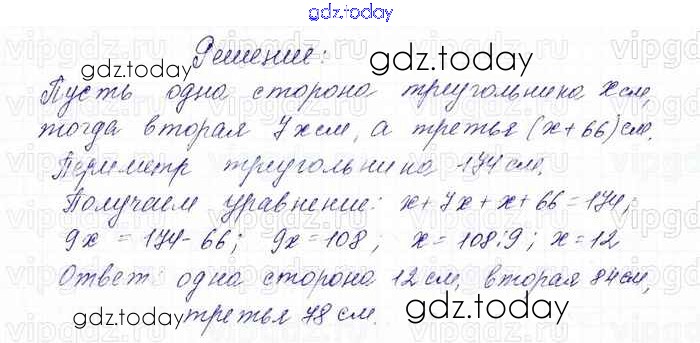 gdz.today
Решение:
Пусть одна сторона треугольника x см,
тогда вторая 7x см, а третья (x+66) см.
Периметр треугольника 174 см.
Получаем уравнение: x+7x+x+66=174;
9x = 174-66; 9x=108; x=108:9; x=12
Ответ: одна сторона 12 см, вторая 84 см,
третья 78 см.
gdz.today
gdz.today
gdz.today
gdz.today
gdz.today